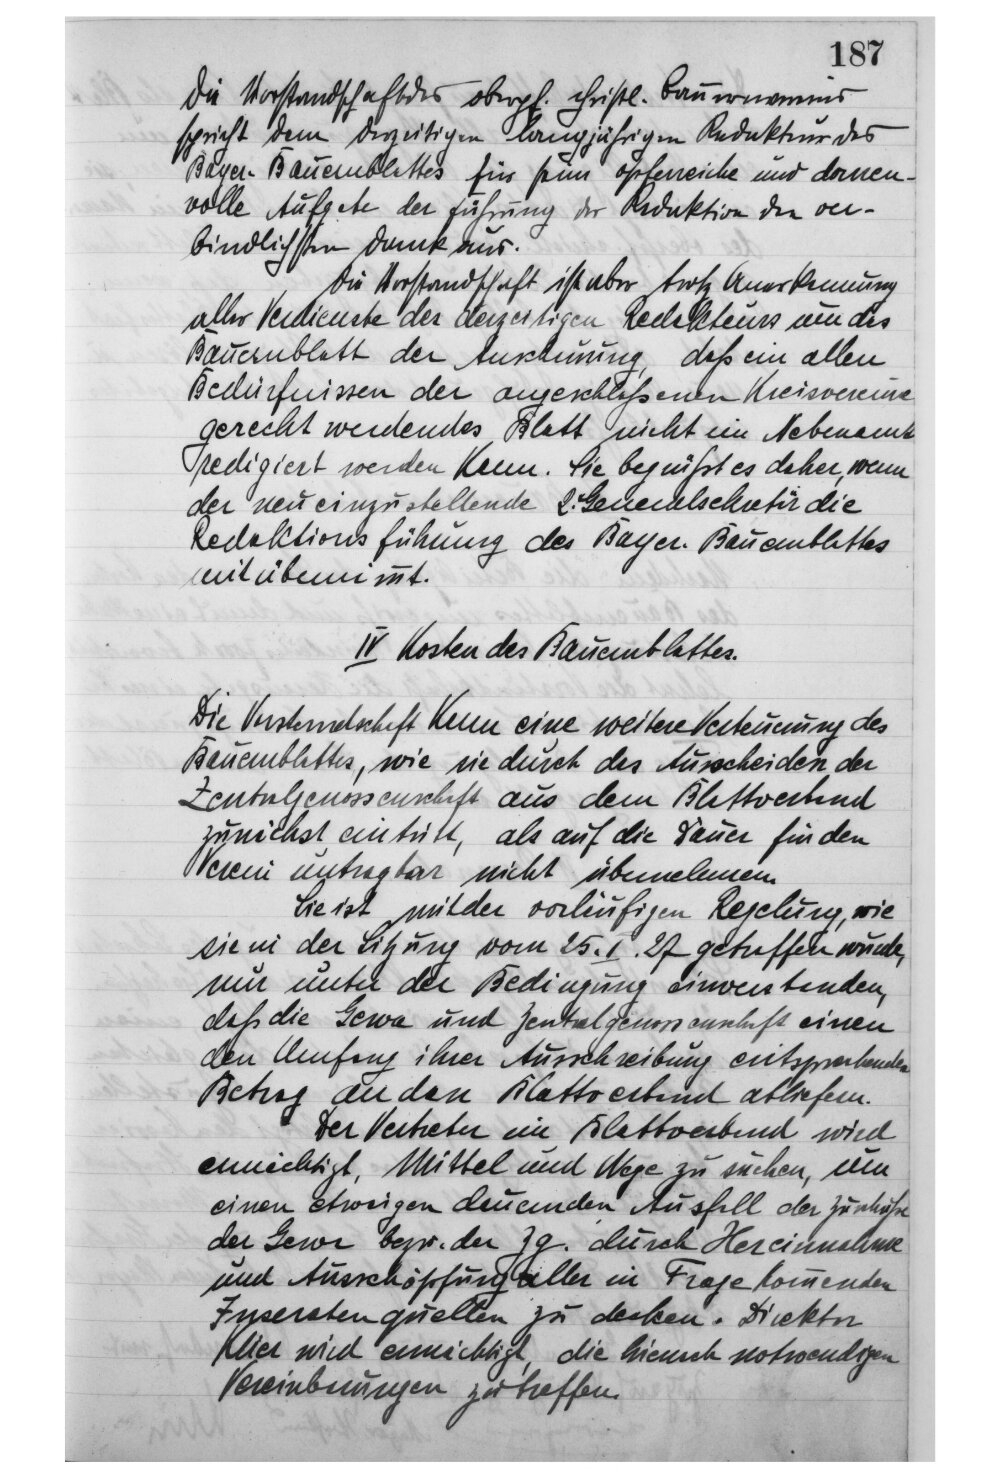 187
Die Vorstandschaft des oberpf. christl. Bauernvereins
spricht dem derzeitigen langjährigen Redakteur des
Bayer. Bauernblattes für seine opferreiche und dornen-
volle Aufgabe der Führung der Redaktion den ver-
bindlichsten Dank aus.
Die Vorstandschaft ist aber trotz Anerkennung
aller Verdienste des derzeitigen Redakteurs um das
Bauernblatt der Anschauung, daß ein allen
Bedürfnissen der angeschloßenen Kreisvereine
gerecht werdendes Blatt nicht im Nebenamt
redigiert werden kann. Sie begrüßt es daher, wenn
der neu einzustellende 2. Generalsekretär die
Redaktionsführung des Bayer. Bauernblattes
mitübernimmt.
IV Kosten des Bauernblattes.
Die Vorstandschaft kann eine weitere Verteuerung des
Bauernblattes, wie sie durch das Ausscheiden der
Zentralgenossenschaft aus dem Blattverband
zunächst eintritt, als auf die Dauer für den
Verein untragbar nicht übernehmen.
Sie ist mit der vorläufigen Regelung, wie
sie in der Sitzung vom 25. I. 27 getroffen wurde,
nur unter der Bedingung einverstanden,
daß die Gewa und Zentralgenossenschaft einen
den Umfang ihrer Ausschreibung entsprechenden
Betrag an den Blattverband abliefern.
Der Vertreter im Blattverband wird
ermächtigt, Mittel und Wege zu suchen, um
einen etwaigen dauernden Ausfall der Zuschüße
der Gewa bezw. der Zg. durch Hereinnahme
und Ausschöpfung aller in Frage kommenden
Inseratenquellen zu decken. Direktor
wird ermächtigt, die hienach notwendigen
Vereinbarungen zu treffen.